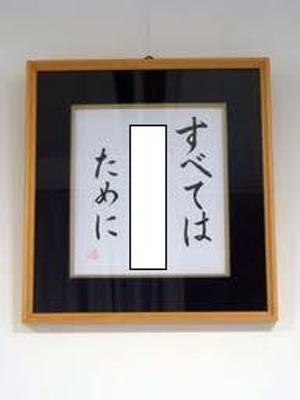 すべては
ために